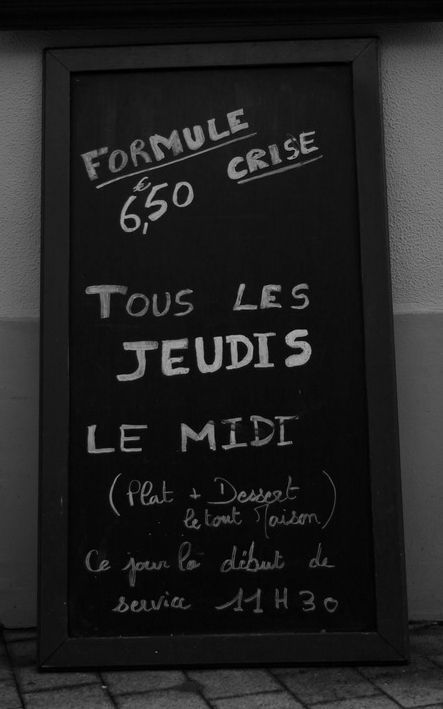 FORMULE CRISE
6,50 €
TOUS LES
JEUDIS
LE MIDI
(Plat + Dessert
le tout Maison)
Ce jour là début de
service 11H30